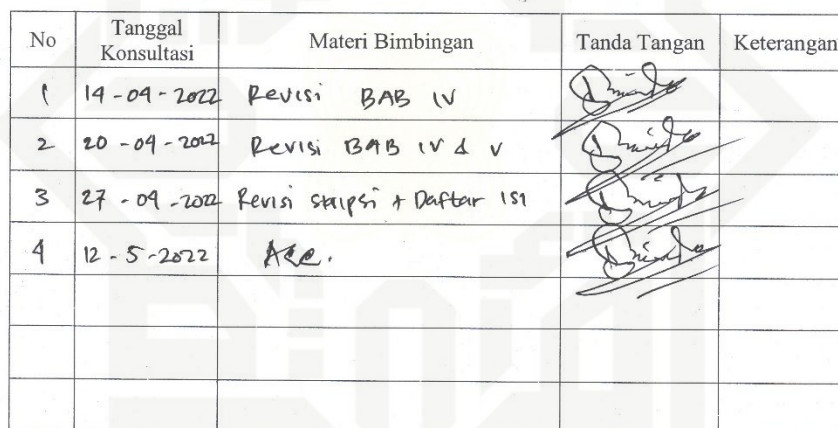 No Tanggal Konsultasi Materi Bimbingan Tanda Tangan Keterangan
1 14-04-2022 Revisi BAB IV
2 20-04-2022 Revisi BAB IV & V
3 27-04-2022 Revisi skripsi + Daftar ISI
4 12-5-2022 Acc.